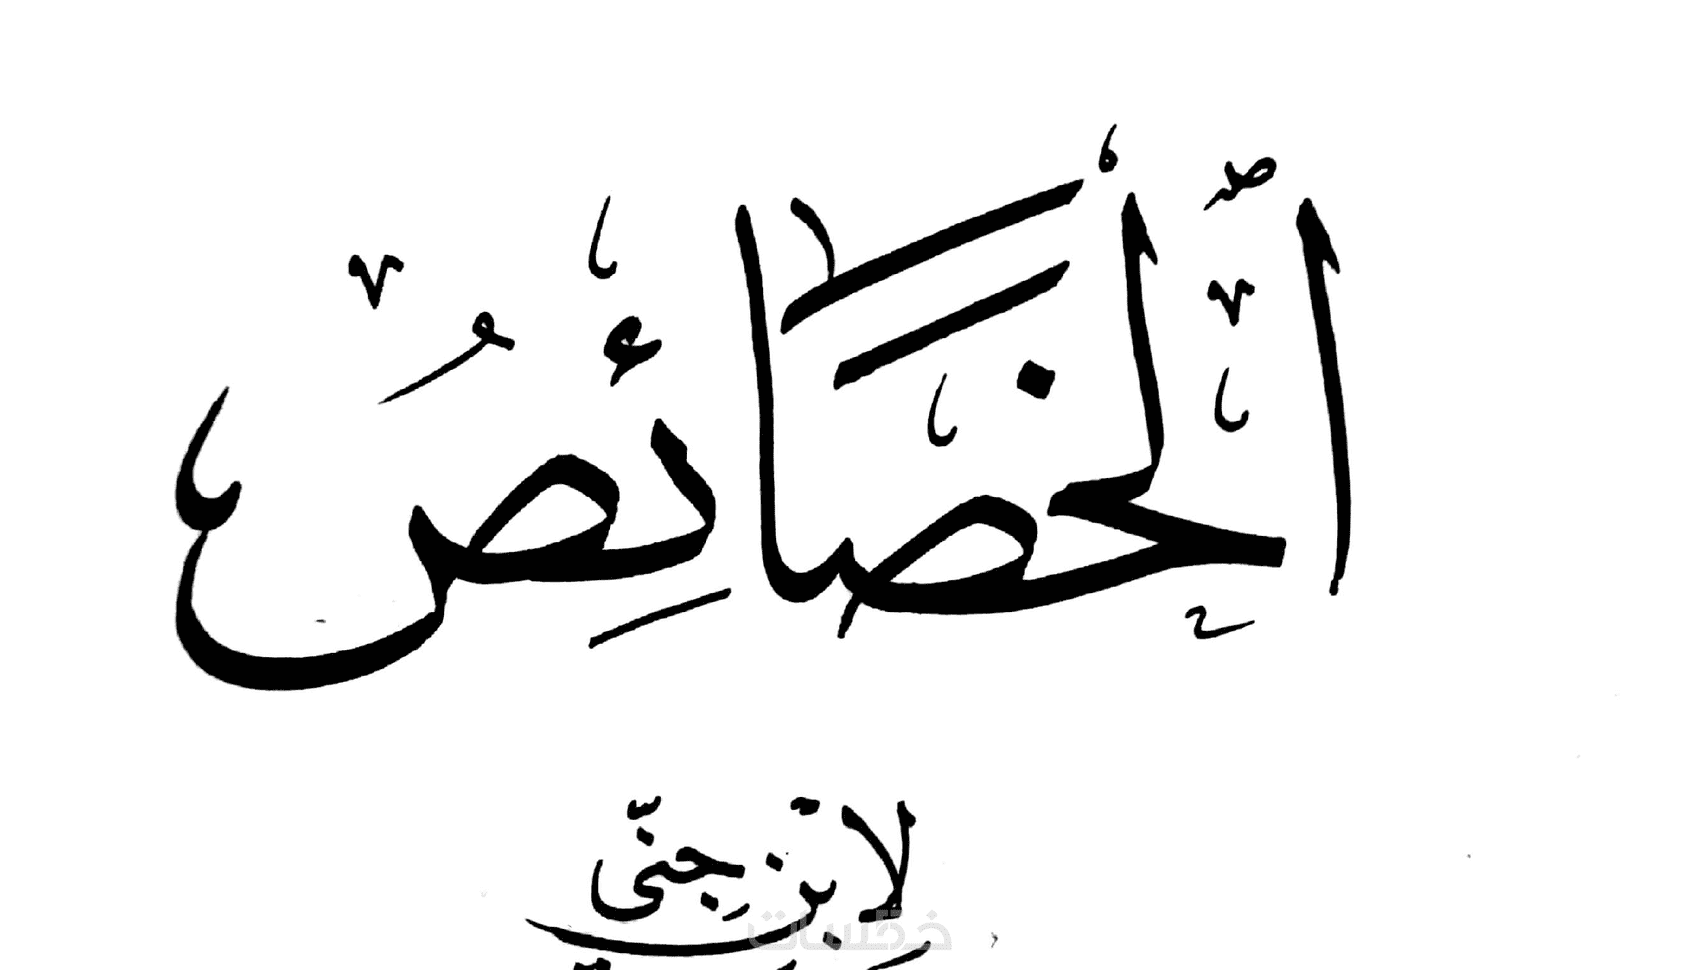 ٱلْخَصَائِصُ
لِابْنِ جِنِّي
خمسات